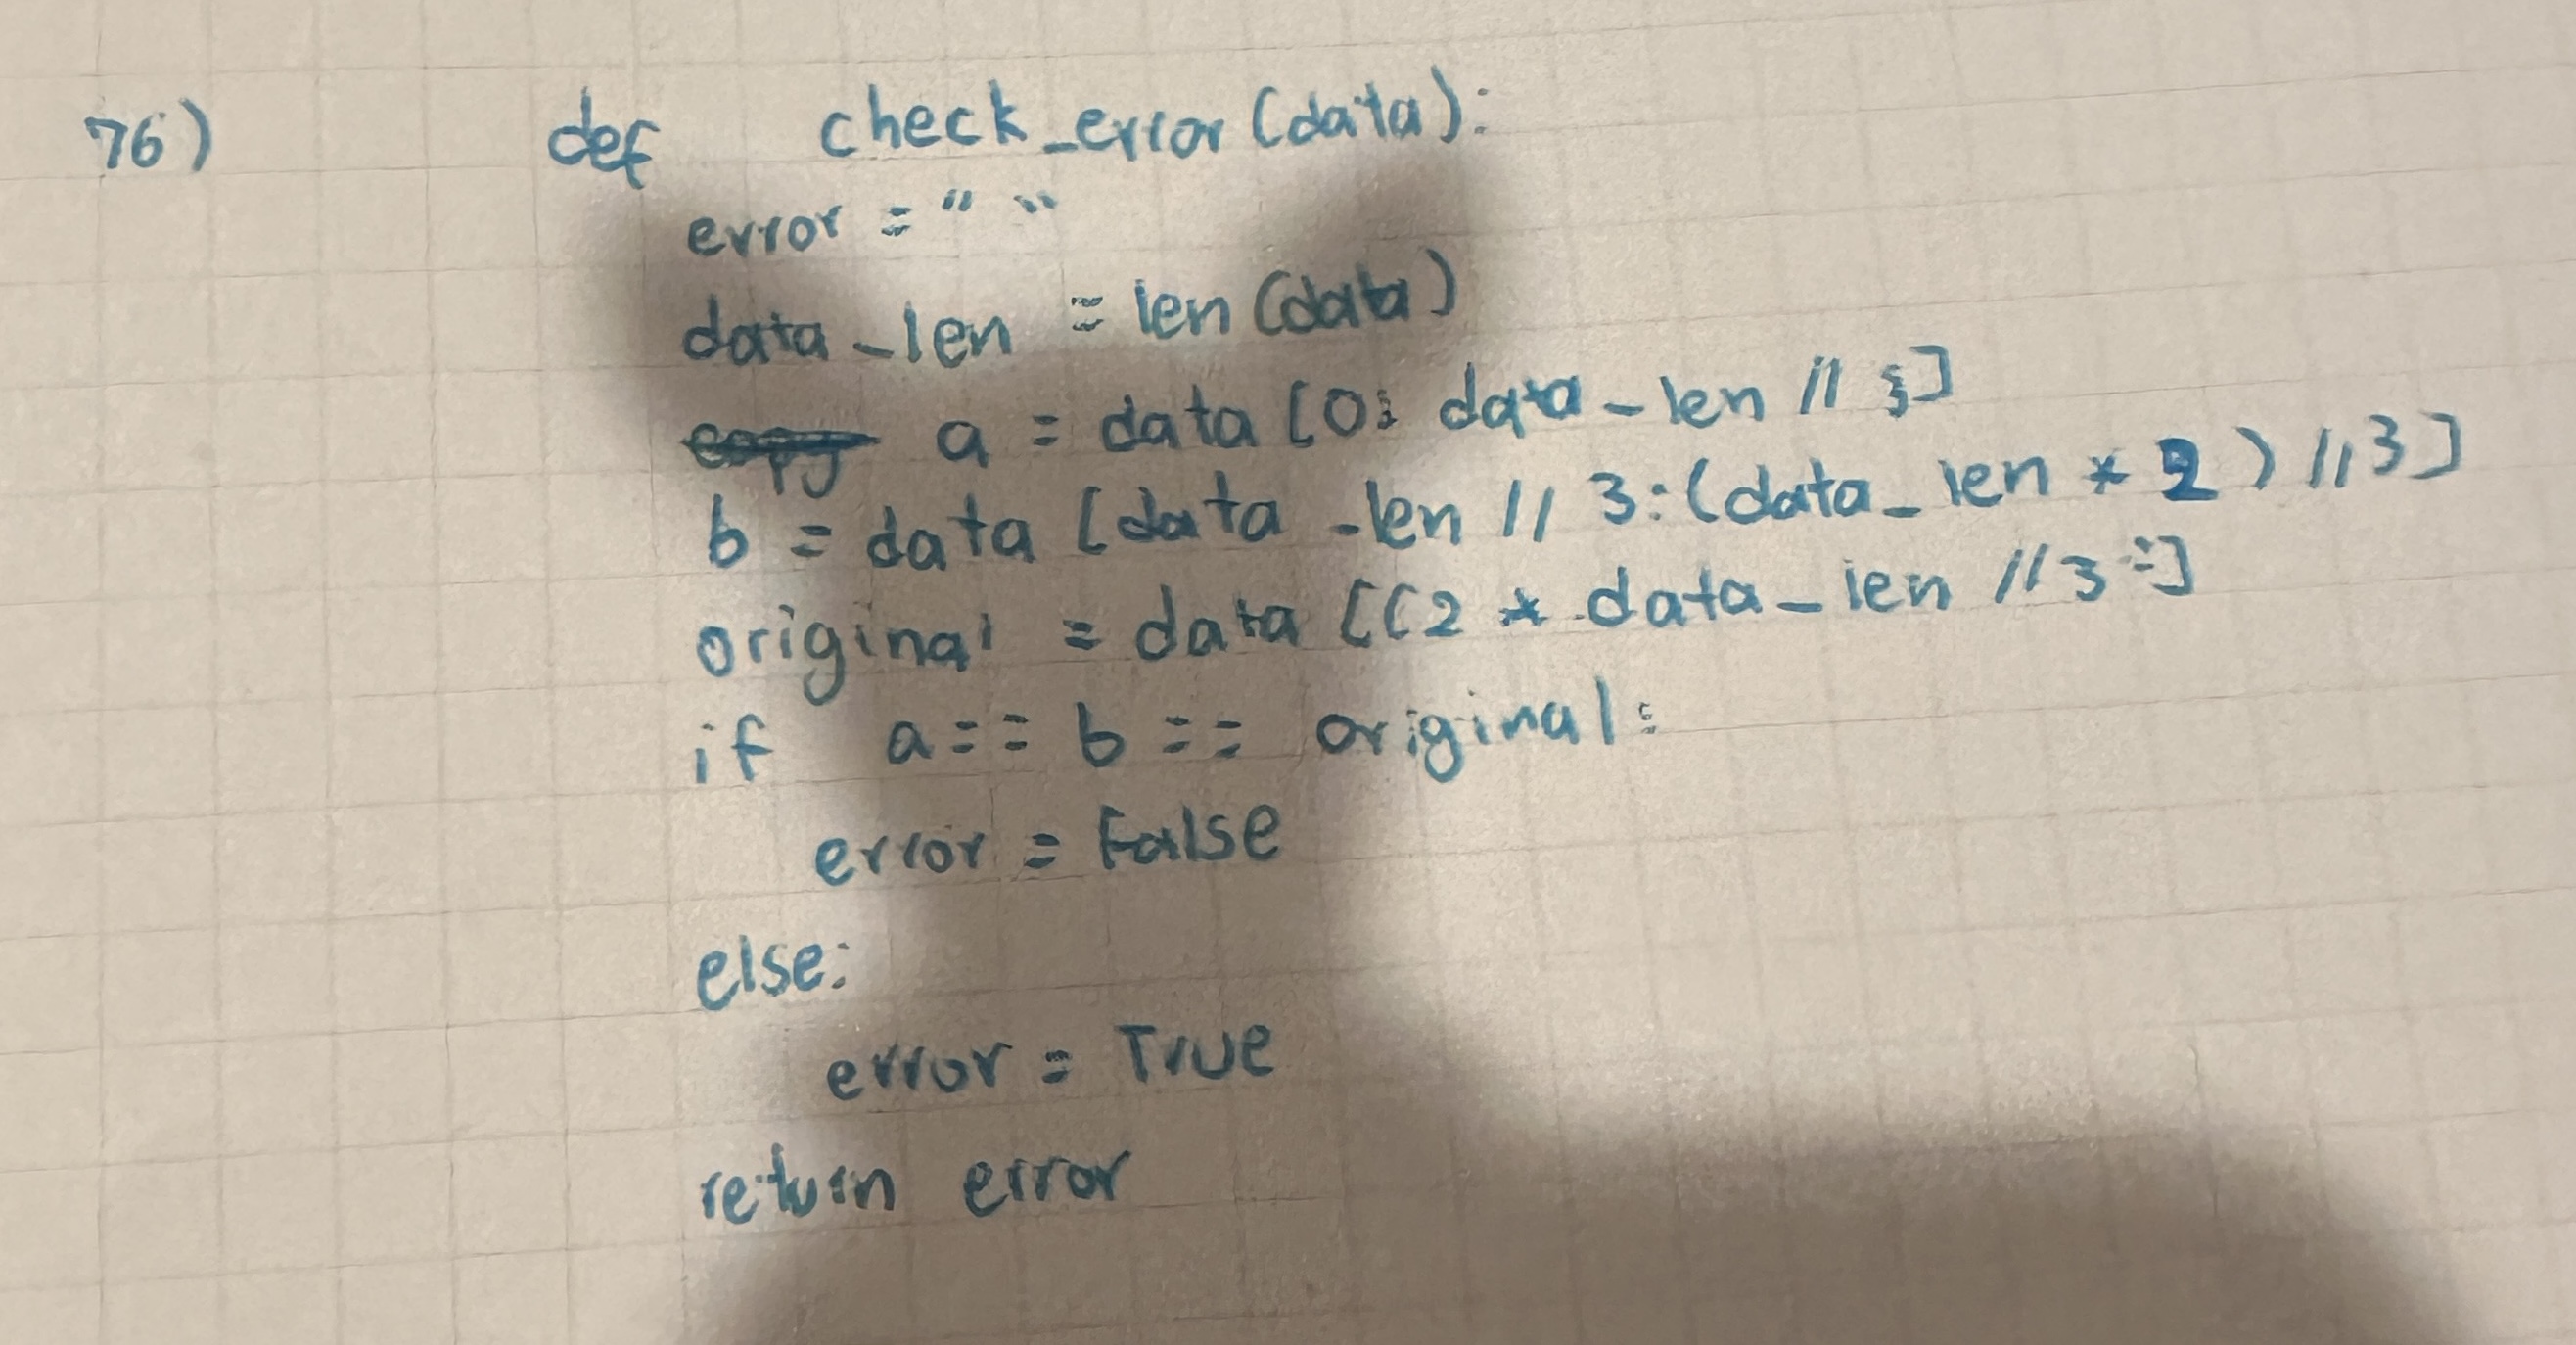 76) def check_error(data):
error = " "
data_len = len(data)
a = data[0: data_len // 3]
b = data[data_len // 3:(data_len * 2) // 3]
original = data[(2 * data_len // 3:]
if a == b == original:
error = False
else:
error = True
return error